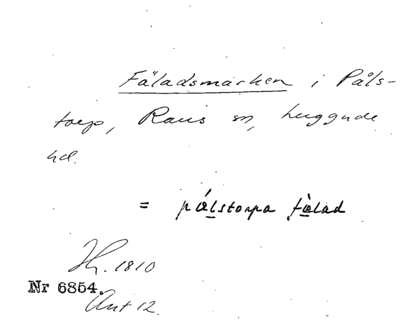 Fäladsmarken i Påls-
torp, Raus sn, Luggude
hd.
= pálstorpa fàlad
1810
Nr 6854.
Ant 12.